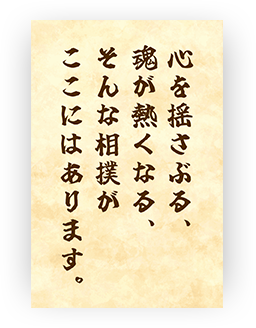 心を揺さぶる、
魂が熱くなる、
そんな相撲が
ここにはあります。